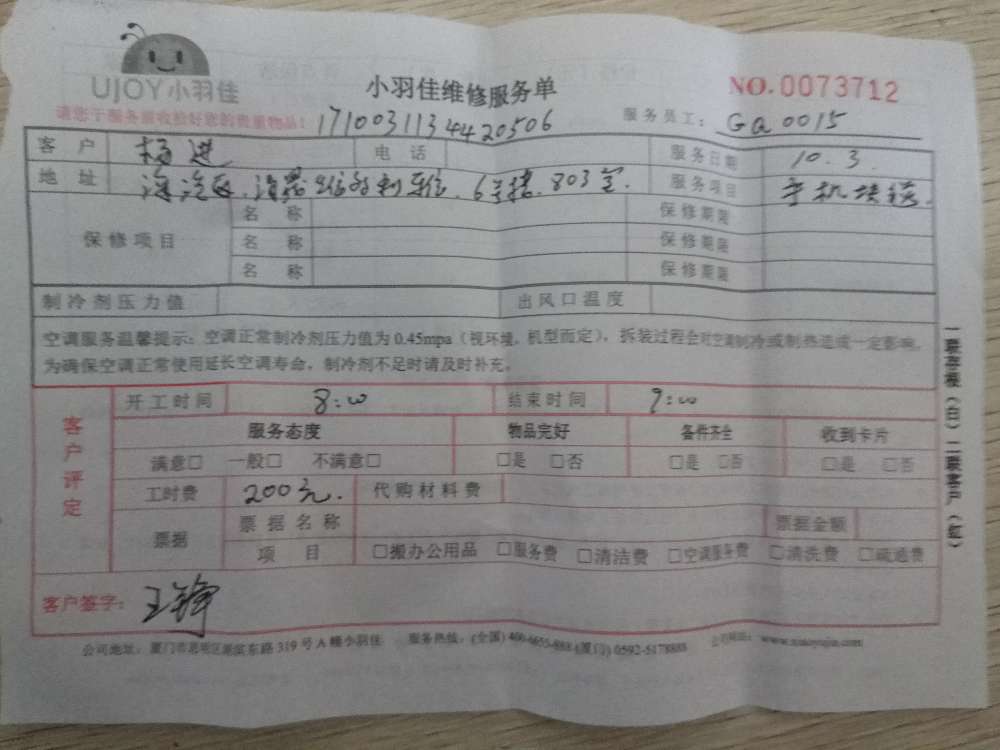 UJOY小羽佳
小羽佳维修服务单
NO.0073712
请您于服务前收拾好您的贵重物品!
1710031134420506
服务员工: GQ0015
客户 杨进 电话 服务日期 10.3.
地址 海沧区.海 6号楼.803室. 服务项目 手机
保修项目 名称 保修期限
名称 保修期限
名称 保修期限
制冷剂压力值 出风口温度
空调服务温馨提示:空调正常制冷剂压力值为0.45mpa(视环境,机型而定),拆装过程会对空调制冷或制热造成一定影响,
为确保空调正常使用延长空调寿命,制冷剂不足时请及时补充。
客户评定
开工时间 8:00 结束时间 9:00
服务态度 物品完好 备件齐全 收到卡片
满意□ 一般□ 不满意□ □是 □否 □是 □否 □是 □否
工时费 200元. 代购材料费
票据 票据名称 票据金额
项目 □搬办公用品 □服务费 □清洁费 □空调服务费 □清洗费 □疏通费
客户签字: 王锋
公司地址:厦门市思明区湖滨东路319号A幢小羽佳 服务热线:(全国)400-6655-888 (厦门) 0592-5178888 公司网址: www.xiaoyujia.com
一联存根(白)二联客户(红)